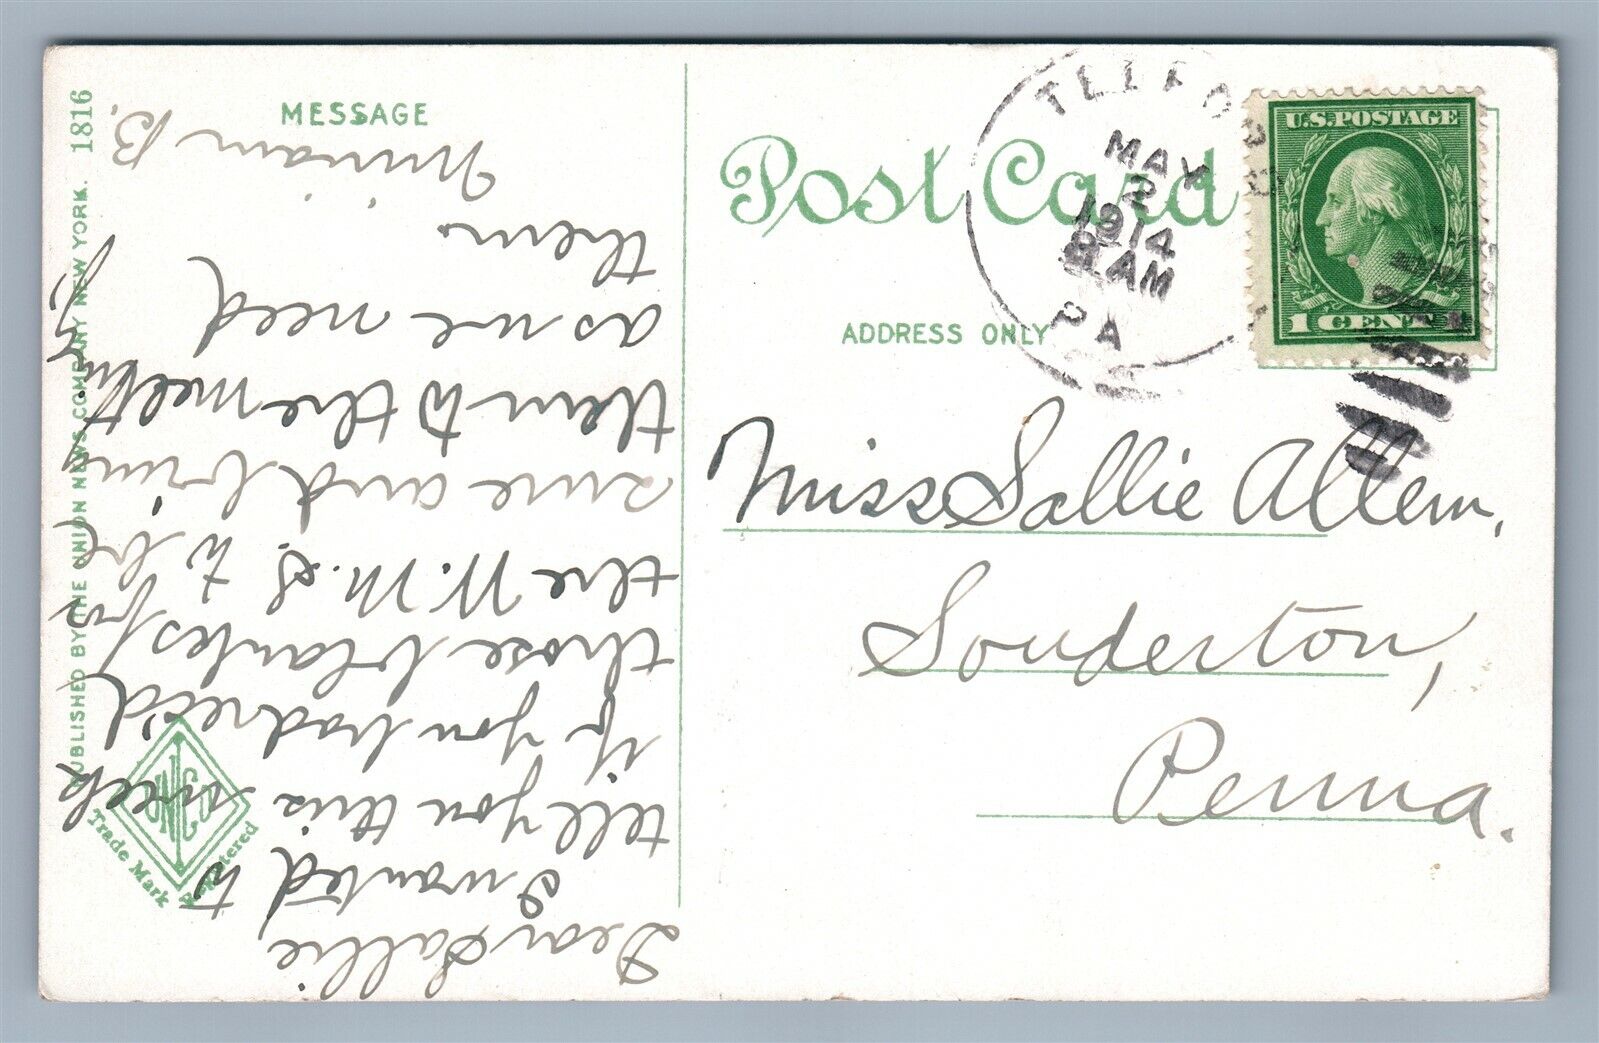 MESSAGE
Post Card
ADDRESS ONLY
TELFORD
MAY
2
1914
8 AM
PA
U.S. POSTAGE
1 CENT 1
Miss Sallie Allem,
Souderton,
Penna.
Dear Sallie
I wanted to
tell you this week
if you had res'd
those blanks for
the W.M.S. to be
sure and bring
them to the meeting
as we need
them.
Miriam B.
PUBLISHED BY THE UNION NEWS COMPANY NEW YORK. 1816
UNCO
Trade Mark
Registered